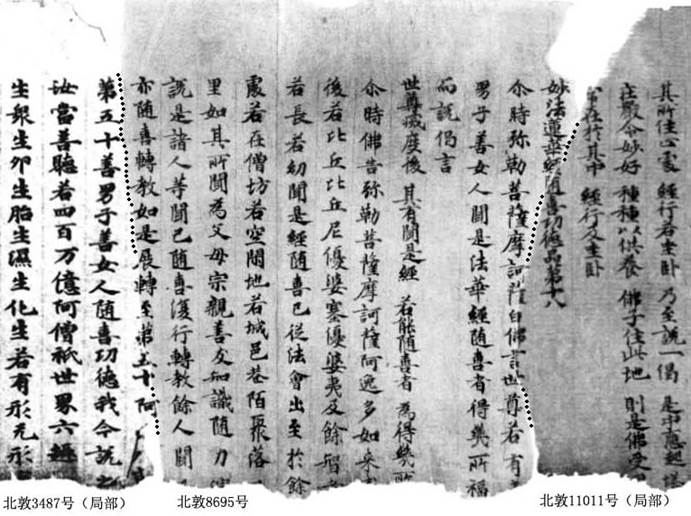 其所住止處 經行若坐卧 乃至說一偈 是中應起塔
莊嚴令妙好 種種以供養 佛子住此地 則是佛受
常在於其中 經行及坐卧
妙法蓮華經隨喜功德品第十八
尒時弥勒菩薩摩訶薩白佛言世尊若有
男子善女人聞是法華經隨喜者得幾所福
而說偈言
世尊滅度後 其有聞是經 若能隨喜者 為得幾所
尒時佛告弥勒菩薩摩訶薩阿逸多如來
後若比丘比丘尼優婆塞優婆夷及餘智
若長若幼聞是經隨喜已從法會出至於餘
處若在僧坊若空閑地若城邑巷陌聚落
里如其所聞為父母宗親善友知識隨力演
說是諸人等聞已隨喜復行轉教餘人聞
亦隨喜轉教如是展轉至第五十阿
第五十善男子善女人隨喜功德我今說之
汝當善聽若四百万億阿僧祇世界六趣
生衆生卵生胎生濕生化生若有形无形
北敦3487号（局部）
北敦8695号
北敦11011号（局部）